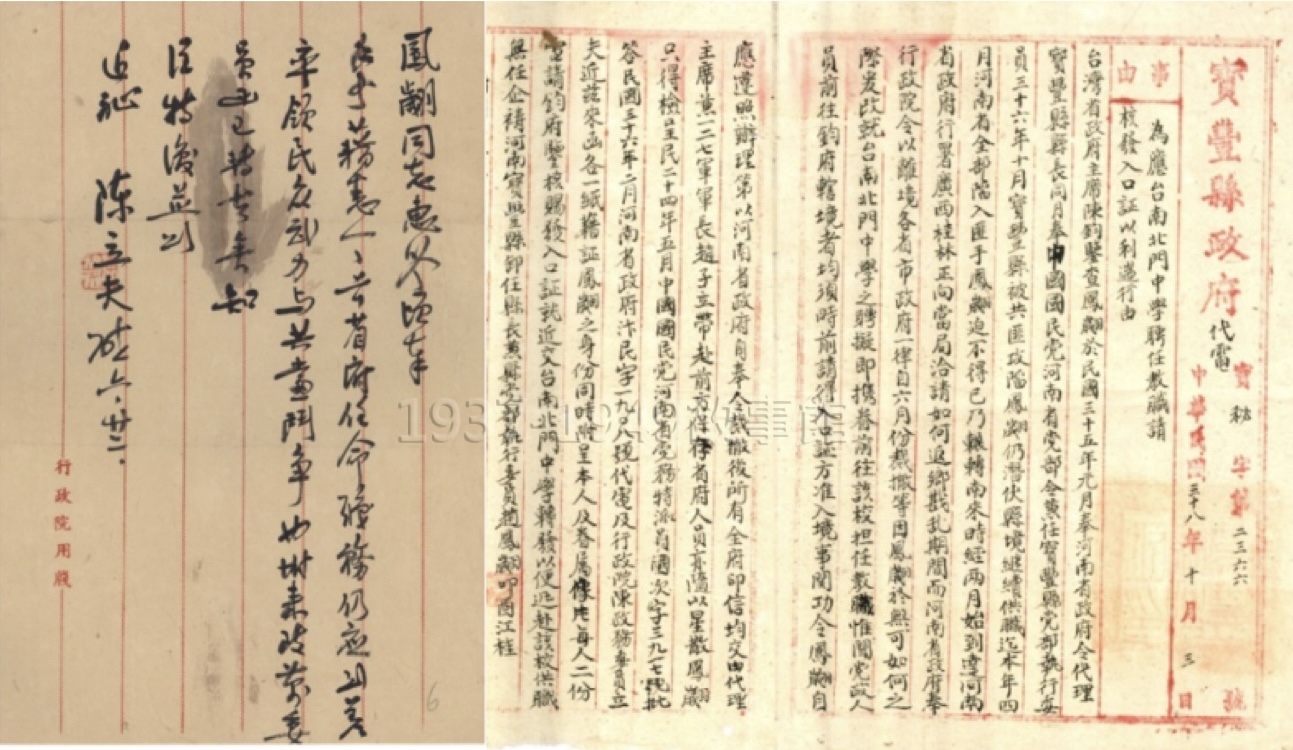 寶豐縣政府代電
寶秘字第二三六六號
中華民國三十八年十月三日
事由
為應台南北門中學聘任教職請
核發入口証以利遄行由
台灣省政府主席陳鈞鑒查鳳翽於民國三十五年元月奉河南省政府令代理
寶豐縣縣長同月奉中國國民党河南省党部令兼任寶豐縣党部執行委
員三十六年十月寶豐縣被共匪攻陷鳳翽仍潛伏縣境繼續供職迄本年四
月河南省全部陷入匪手鳳翽迫不得已乃輾轉南來時經兩月始到達河南
省政府行署廣西桂林正向當局洽請如何返鄉戡乱期間而河南省政府奉
行政院令以離境各省市政府一律自六月份裁撤等因鳳翽於無可如何之
際爰改就台南北門中學之聘擬即携眷前往該校担任教職惟聞党政人
員前往鈞府轄境者均須時前請得入口証方准入境事関功令鳳翽自
應遵照辦理第以河南省政府自奉令裁撤後所有全府印信均交由代理
主席兼一二七軍軍長趙子立帶赴前方保存省府人員亦隨以星散鳳翽
只得檢呈民二十四年五月中國國民党河南省党務特派員國次字三九一七號批
答民國三十六年二月河南省政府汴民字一九〇八號代電及行政院陳政務委員立
夫近茲來函各一紙藉証鳳翽之身份同時附呈本人及眷屬像片每人二份
電請鈞府鑒核賜發入口証就近交台南北門中學轉發以便迅赴該校供職
無任企禱河南寶豐縣卸任縣長兼縣党部執行委員趙鳳翽叩酉江桂
鳳翽同志惠鑒頃奉
手書藉悉一一省府任命職務仍應到差
率領民众武力与共黨鬥爭也
員函已轉去矣知
注特復並頌
近祉 陳立夫啟六、廿三、
行政院用牋
6